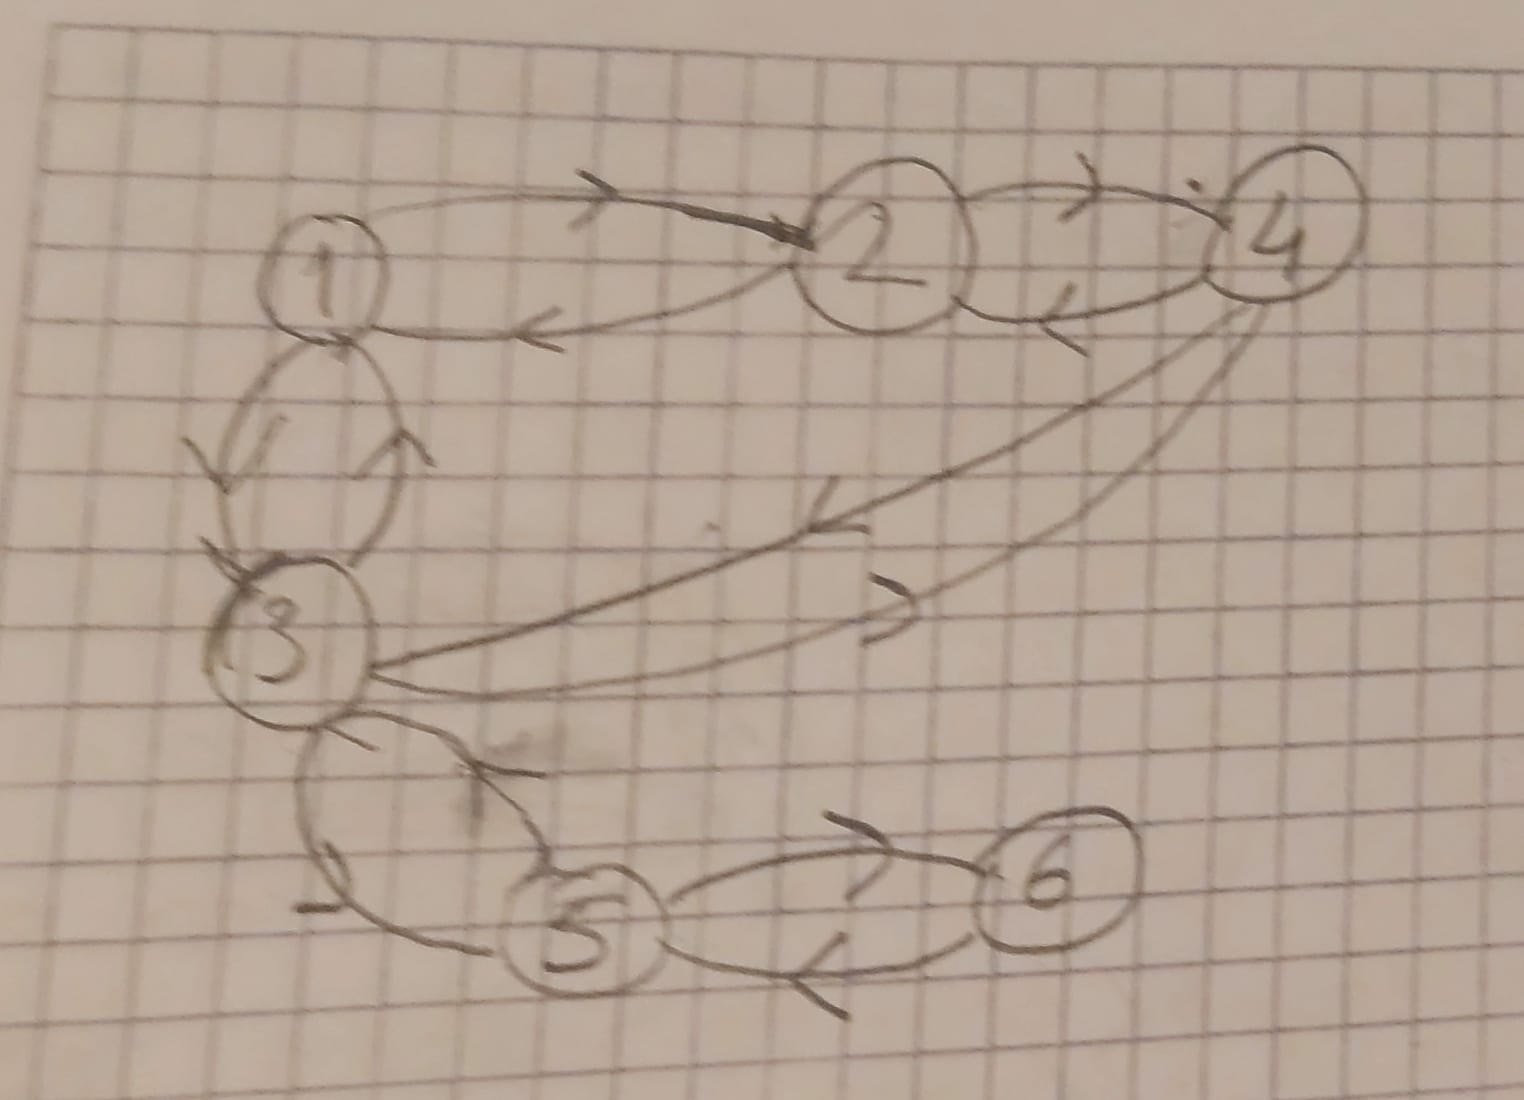 1 2 4
3
5 6